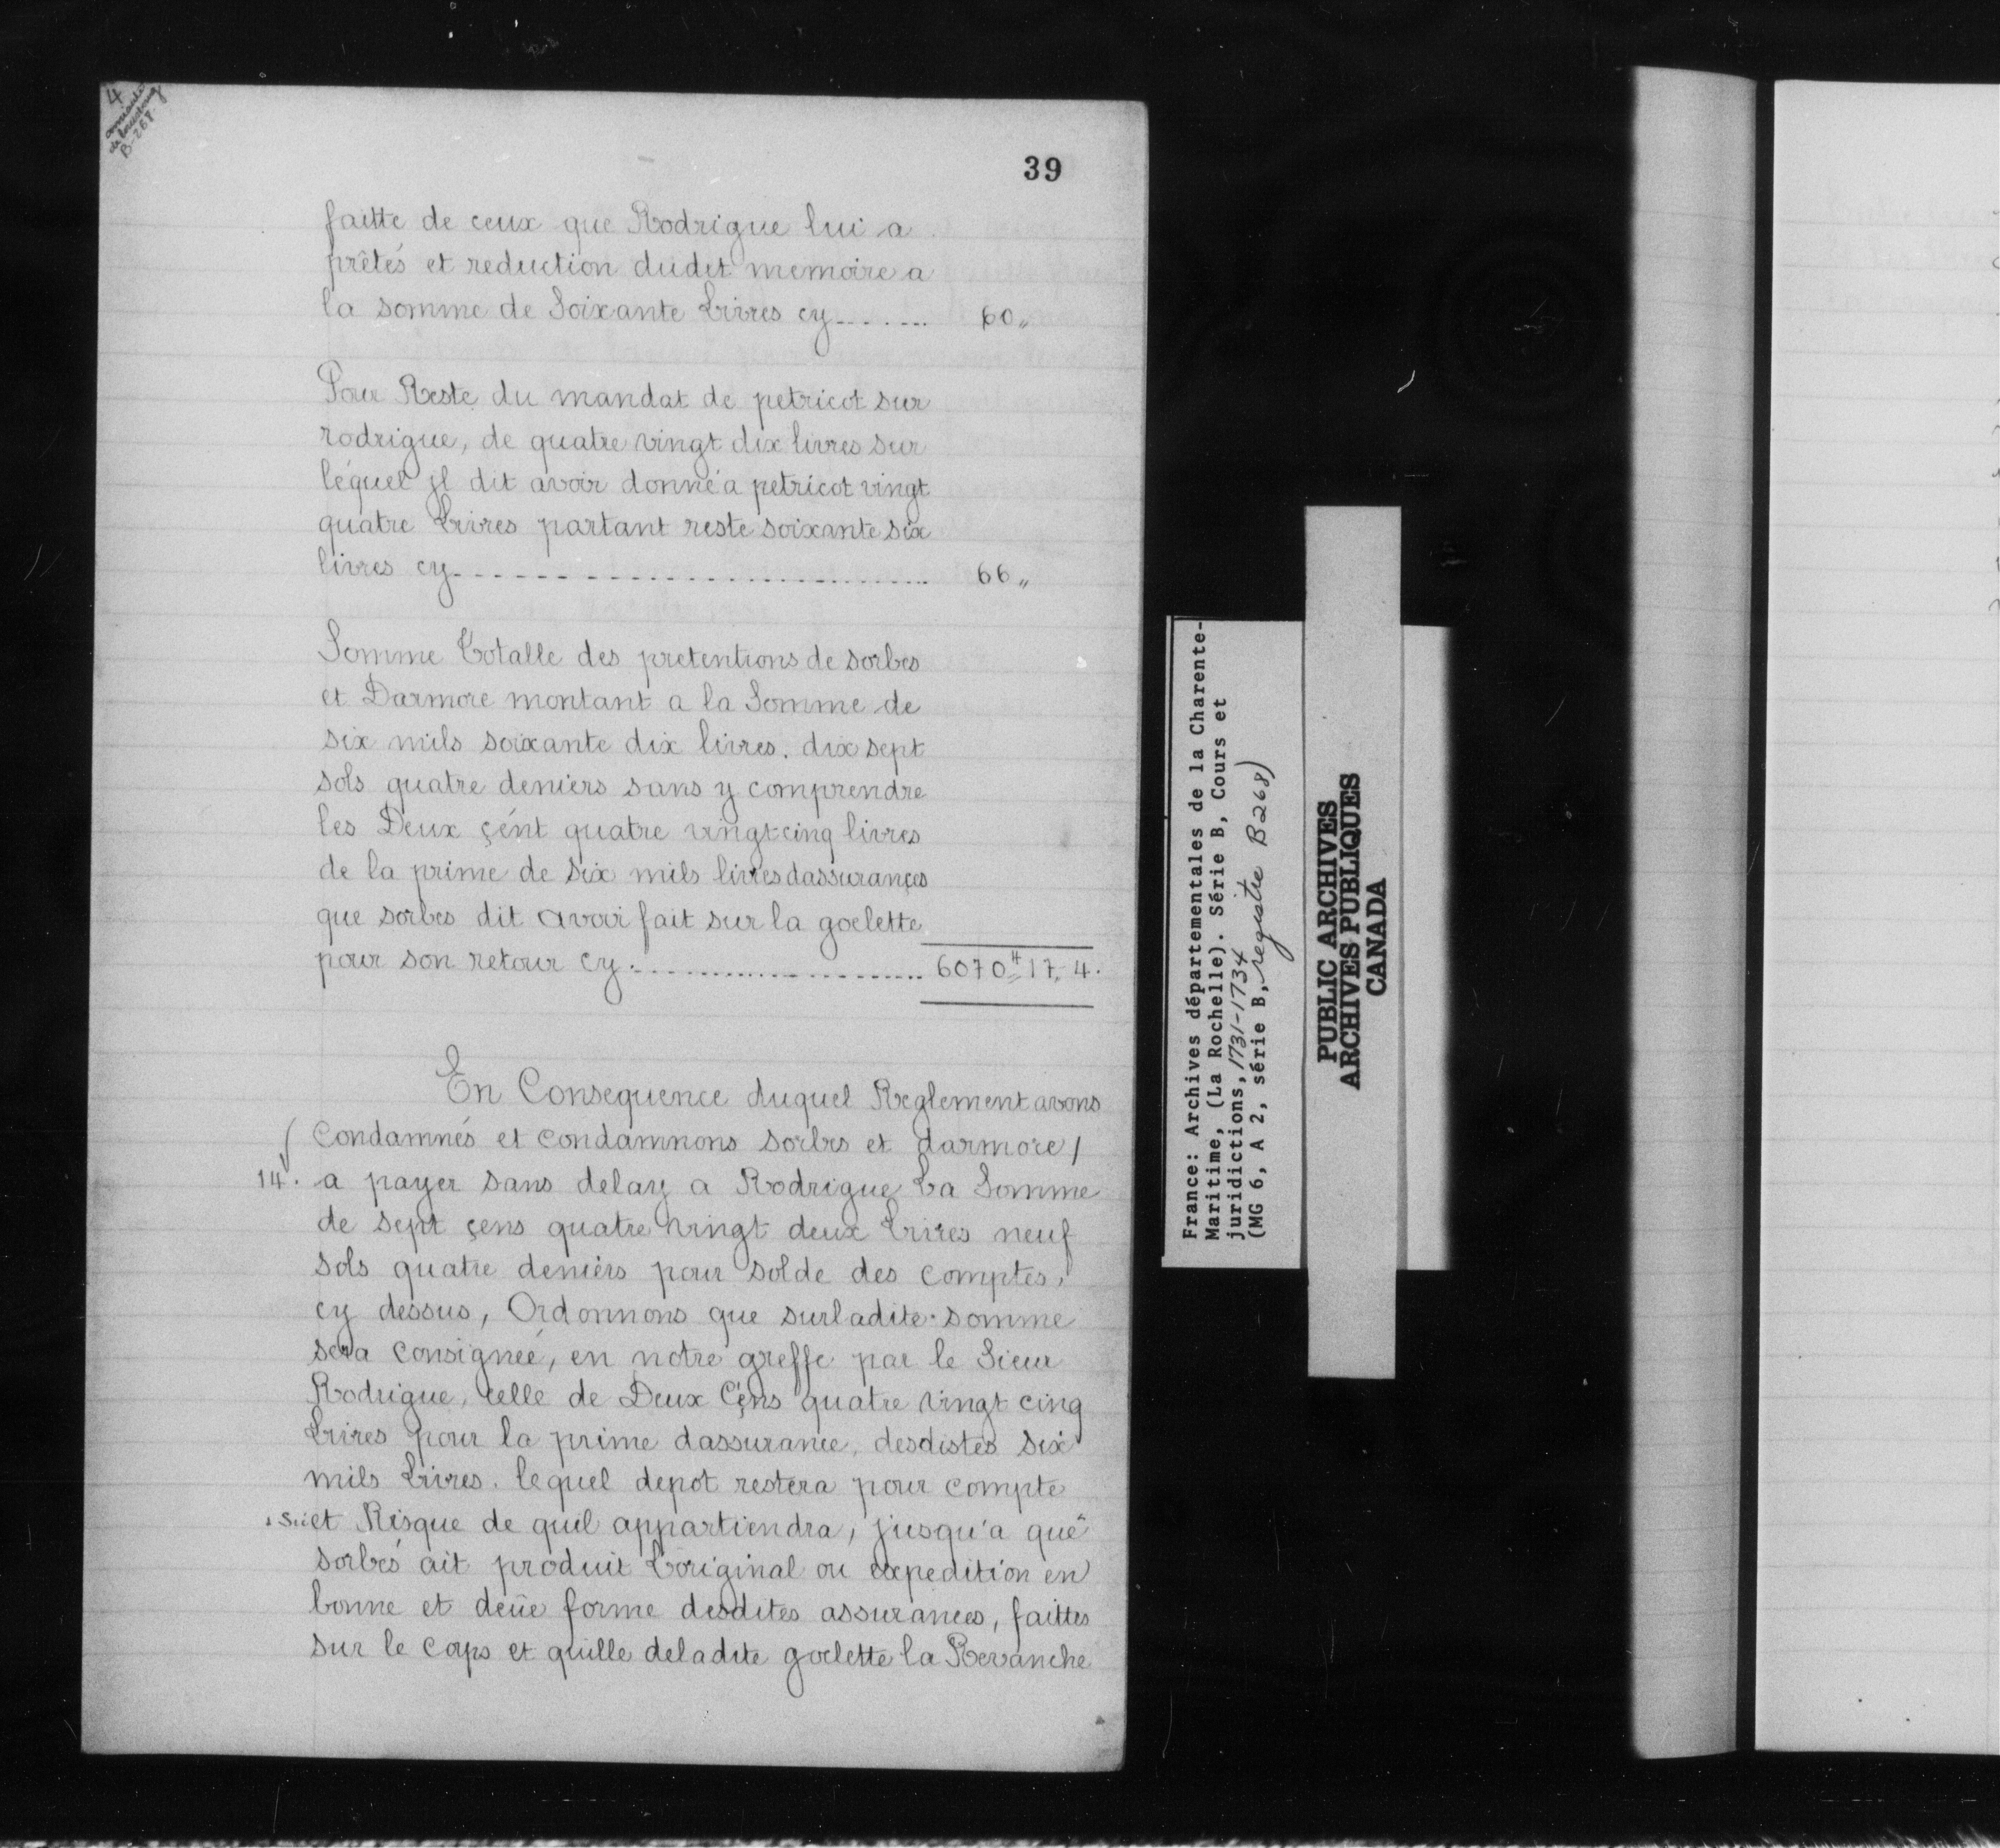 4
amirauté
de Louisbourg
B-268.
39
faitte de ceux que Rodrigue lui a
prêtés et reduction dudit memoire a
la somme de Soixante Livres cy........ 60"
Pour Reste du mandat de petricot sur
rodrigue, de quatre vingt dix livres sur
léquel jl dit avoir donné a petricot vingt
quatre Livres partant reste soixante six
livres cy........................ 66"
Somme Totalle des pretentions de sorbes
et Darmore montant a la Somme de
six mils soixante dix livres. dix sept
sols quatre deniers sans y comprendre
les Deux çént quatre vingt cinq livres
de la prime de six mils livres dassurances
que sorbes dit avoir fait sur la goelette
pour son retour cy........................ 6070# 17.4.
En Consequence duquel Reglement avons
Condamnés et condamnons sorbes et darmore /
14. a payer sans delay a Rodrigue La Somme
de sept çens quatre vingt deux Livres neuf
sols quatre deniers pour solde des comptes,
cy dessus, Ordonnons que surladite somme
sera consigneé, en notre greffe par le Sieur
Rodrigue, celle de Deux Cens quatre vingt cinq
Livres pour la prime dassurance, desdistes six
mils Livres. lequel depot restera pour compte
et Risque de quil appartiendra, jusqu'a que
sorbes ait produit L'original ou expedition en
bonne et deüe forme desdites assurances, faittes
sur le corps et quille deladite goelette la Revanche
France: Archives départementales de la Charente-
Maritime, (La Rochelle). Série B, Cours et
juridictions, 1731-1734
(MG 6, A 2, série B, registre B268)
PUBLIC ARCHIVES
ARCHIVES PUBLIQUES
CANADA